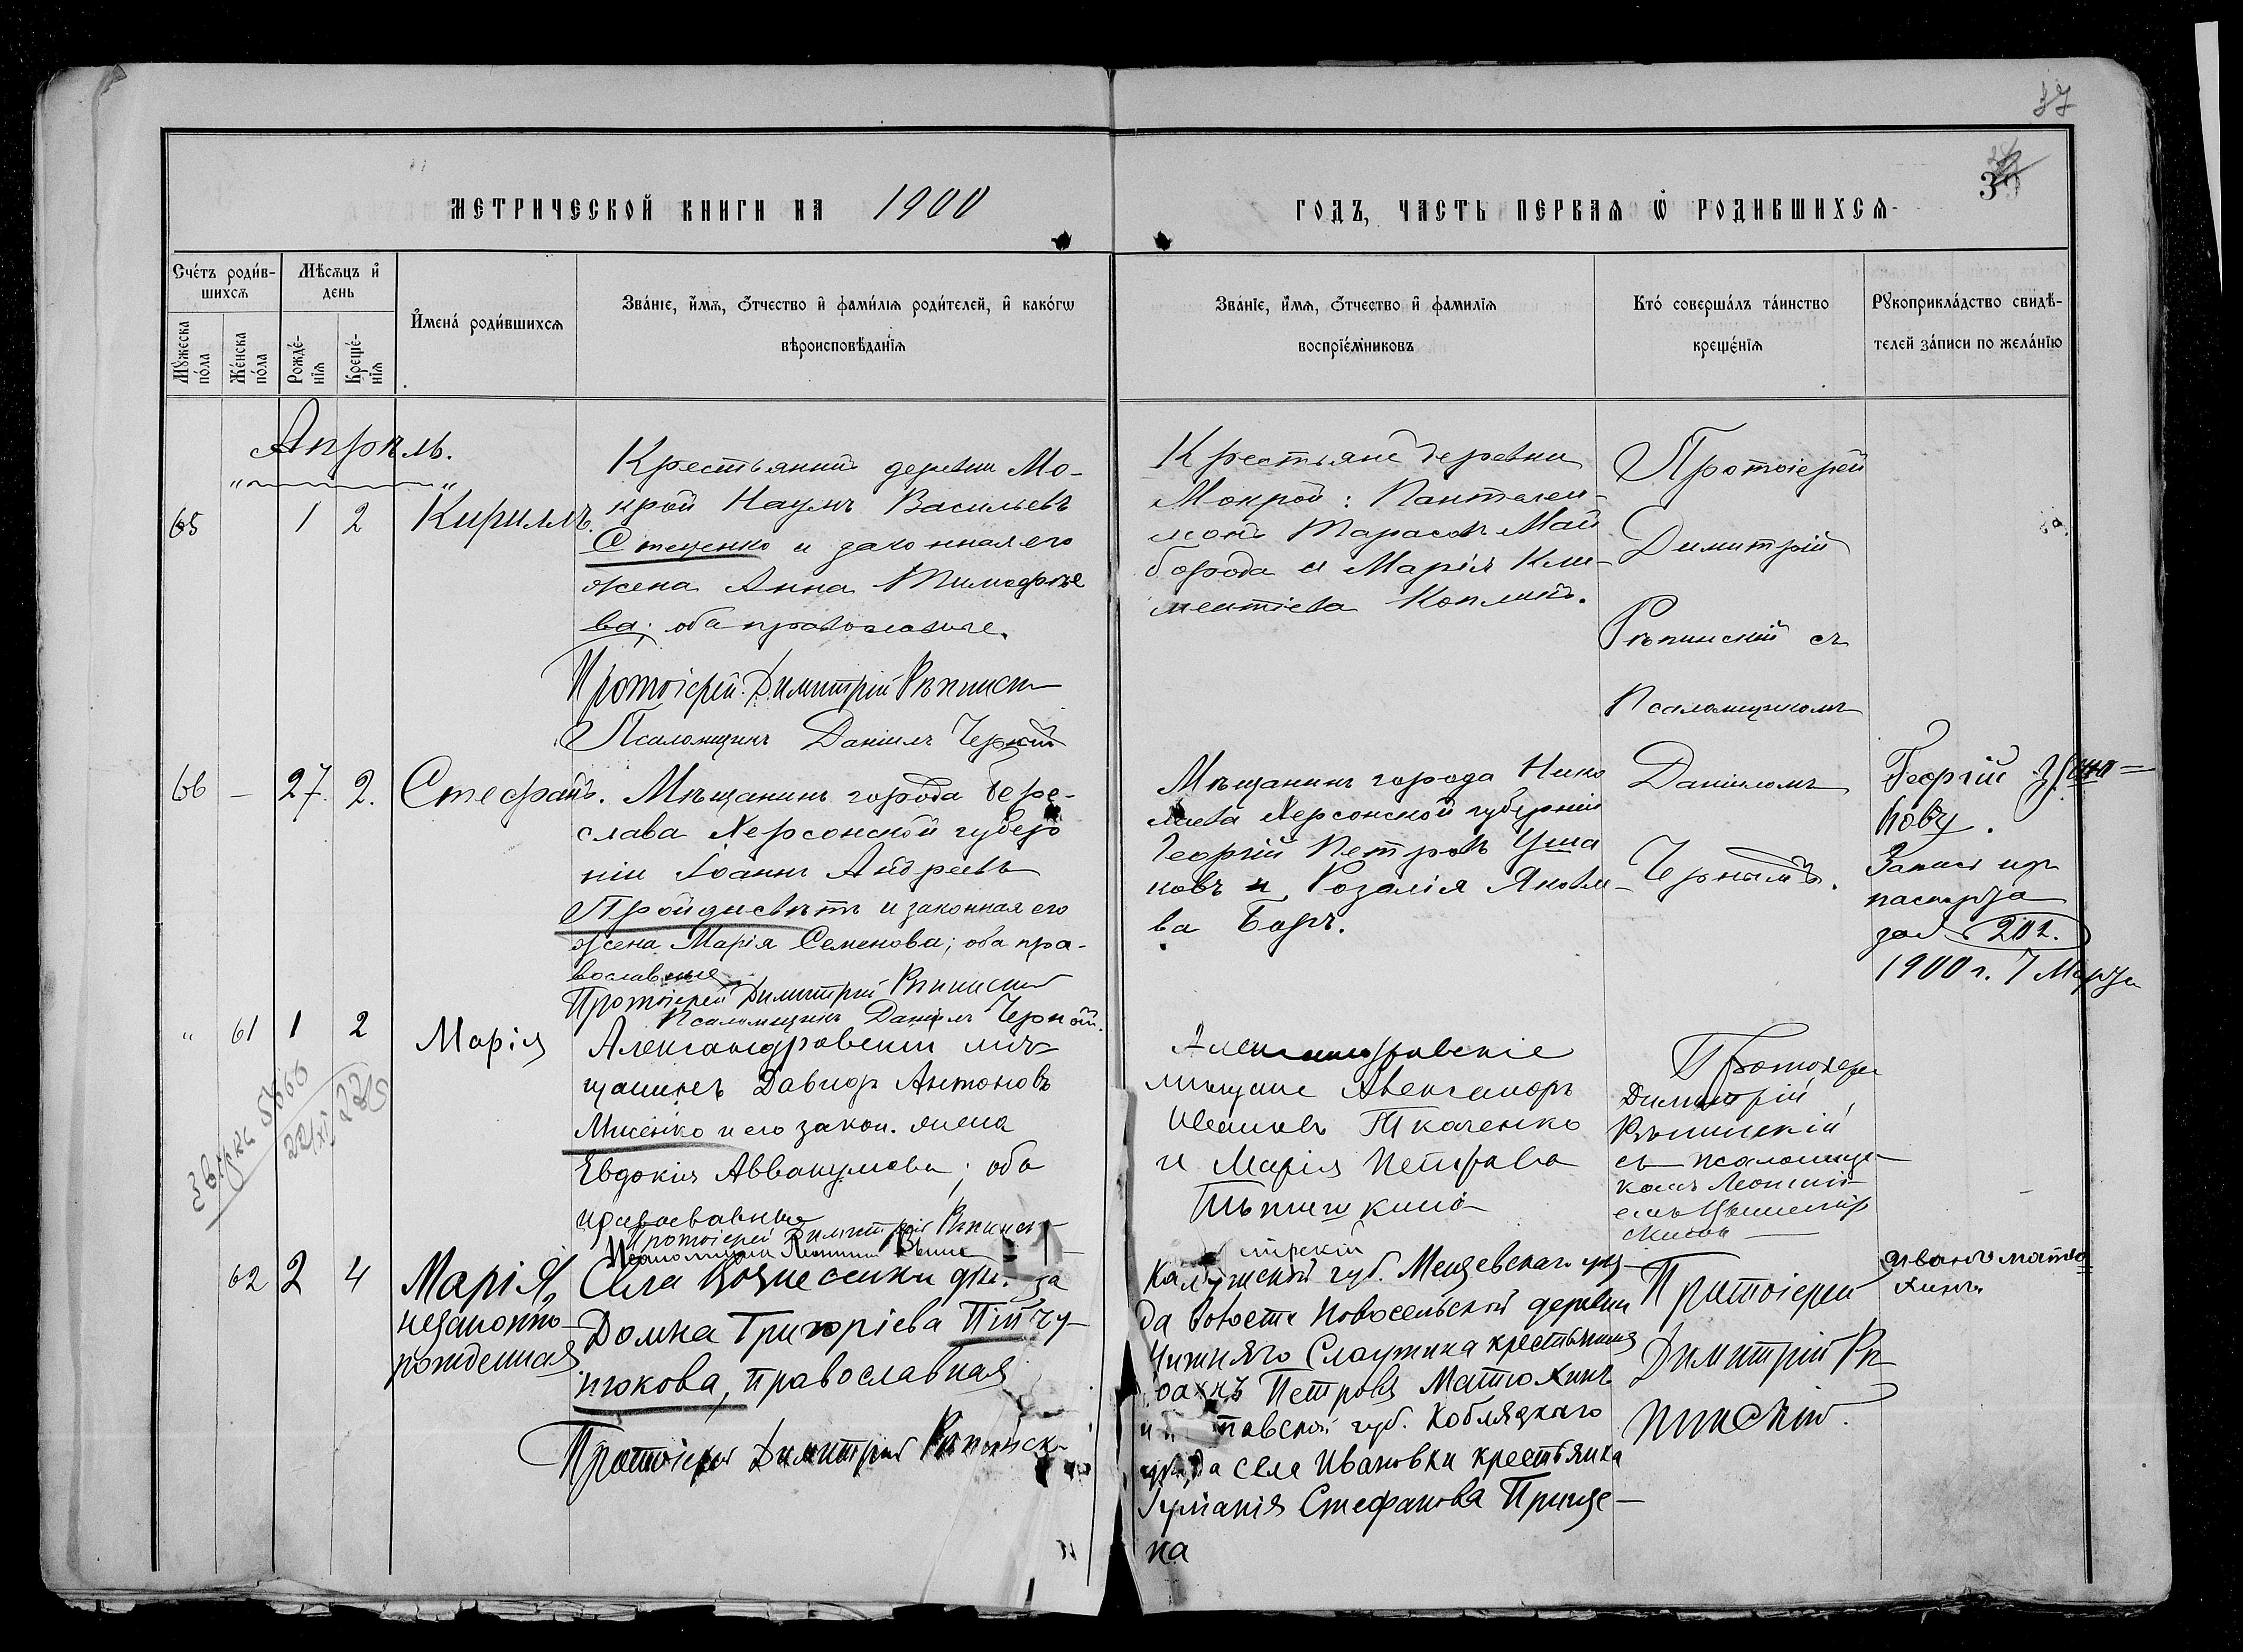 37
МЕТРИЧЕСКОЙ КНИГИ НА 1900 ГОДЪ, ЧАСТЬ ПЕРВАЯ Ѡ РОДИВШИХСЯ
Сче́тъ роди́в-
шихсѧ
Мѣ́сѧцъ и҆
день
Мꙋ́жеска по́ла
Же́нска по́ла
Рожде́-
нїѧ
Креще́-
нїѧ
И҆мена́ роди́вшихсѧ
Зва́нїе, и҆́мѧ, ѻ҆́тчество и҆ фами́лїѧ роди́телей, и҆ како́гѡ
вѣроисповѣ́данїѧ
Зва́нїе, и҆́мѧ, ѻ҆́тчество и҆ фами́лїѧ
воспрїе́мниковъ
Кто̀ соверша́лъ та́инство
креще́нїѧ
Рꙋкоприкла́дство свидѣ́-
телей за́писи по жела́нїю
Апрѣль.
65
1
2
Кириллъ.
Крестьянинъ деревни Мо-
крой Наумъ Васильевъ
Стеценко и законная его
жена Анна Тимофѣе
ва; оба православные.
Протоіерей Димитрій Рѣпинскій
Псаломщикъ Даніилъ Черный
Крестьяне деревни
Мокрой: Пантелеи-
монъ Тарасовъ Май
борода и Марія Кли-
ментіева
Протоіерей
Димитрій
Рѣпинскій съ
Псаломщикомъ
Даніиломъ
Чернымъ.
66
–
27.
2.
Стефанъ.
Мѣщанинъ города Бере-
слава Херсонской губер
ніи Іоаннъ Андреевъ
Пройдисвѣтъ и законная его
жена Марія Семенова; оба пра-
вославные
Протоіерей Димитрій Рѣпинскій
Псаломщикъ Даніилъ Черный.
Мѣщанинъ города Нико
лаева Херсонской губерніи
Георгій Петровъ Уша
ковъ и Розалія Яковле-
ва
Георгій
Запись
паспорта
за № 202.
1900 г. 7 Марта
"
61
1
2
Марія
Александровскій мѣ-
щанинъ Давидъ Антоновъ
Мисенко и его закон. жена
Евдокія Аввакумова; оба
православные
Протоіерей Димитрій Рѣпинскій
Псаломщикъ
Александровскіе
мѣщане Александръ
Ивановъ Ткаченко
и Марія Петрова
Протоіерей
Димитрій
Рѣпинскій
съ псаломщи-
комъ
22/XI 22
62
2
4
Марія,
незаконно-
рожденная
Села Вознесенки
Домна Григоріева Пійчу-
пюкова, православная
Протоіерей Димитрій Рѣпинскій
Калужской губ. Мещевскаго уѣз-
да Новосельской деревни
Нижняго крестьянинъ
Петровъ Матюхинъ
губ. Кобелякскаго
уѣзда села Ивановки крестьянка
Стефанова Прище-
па
Протоіерей
Димитрій Рѣ-
пинскій.